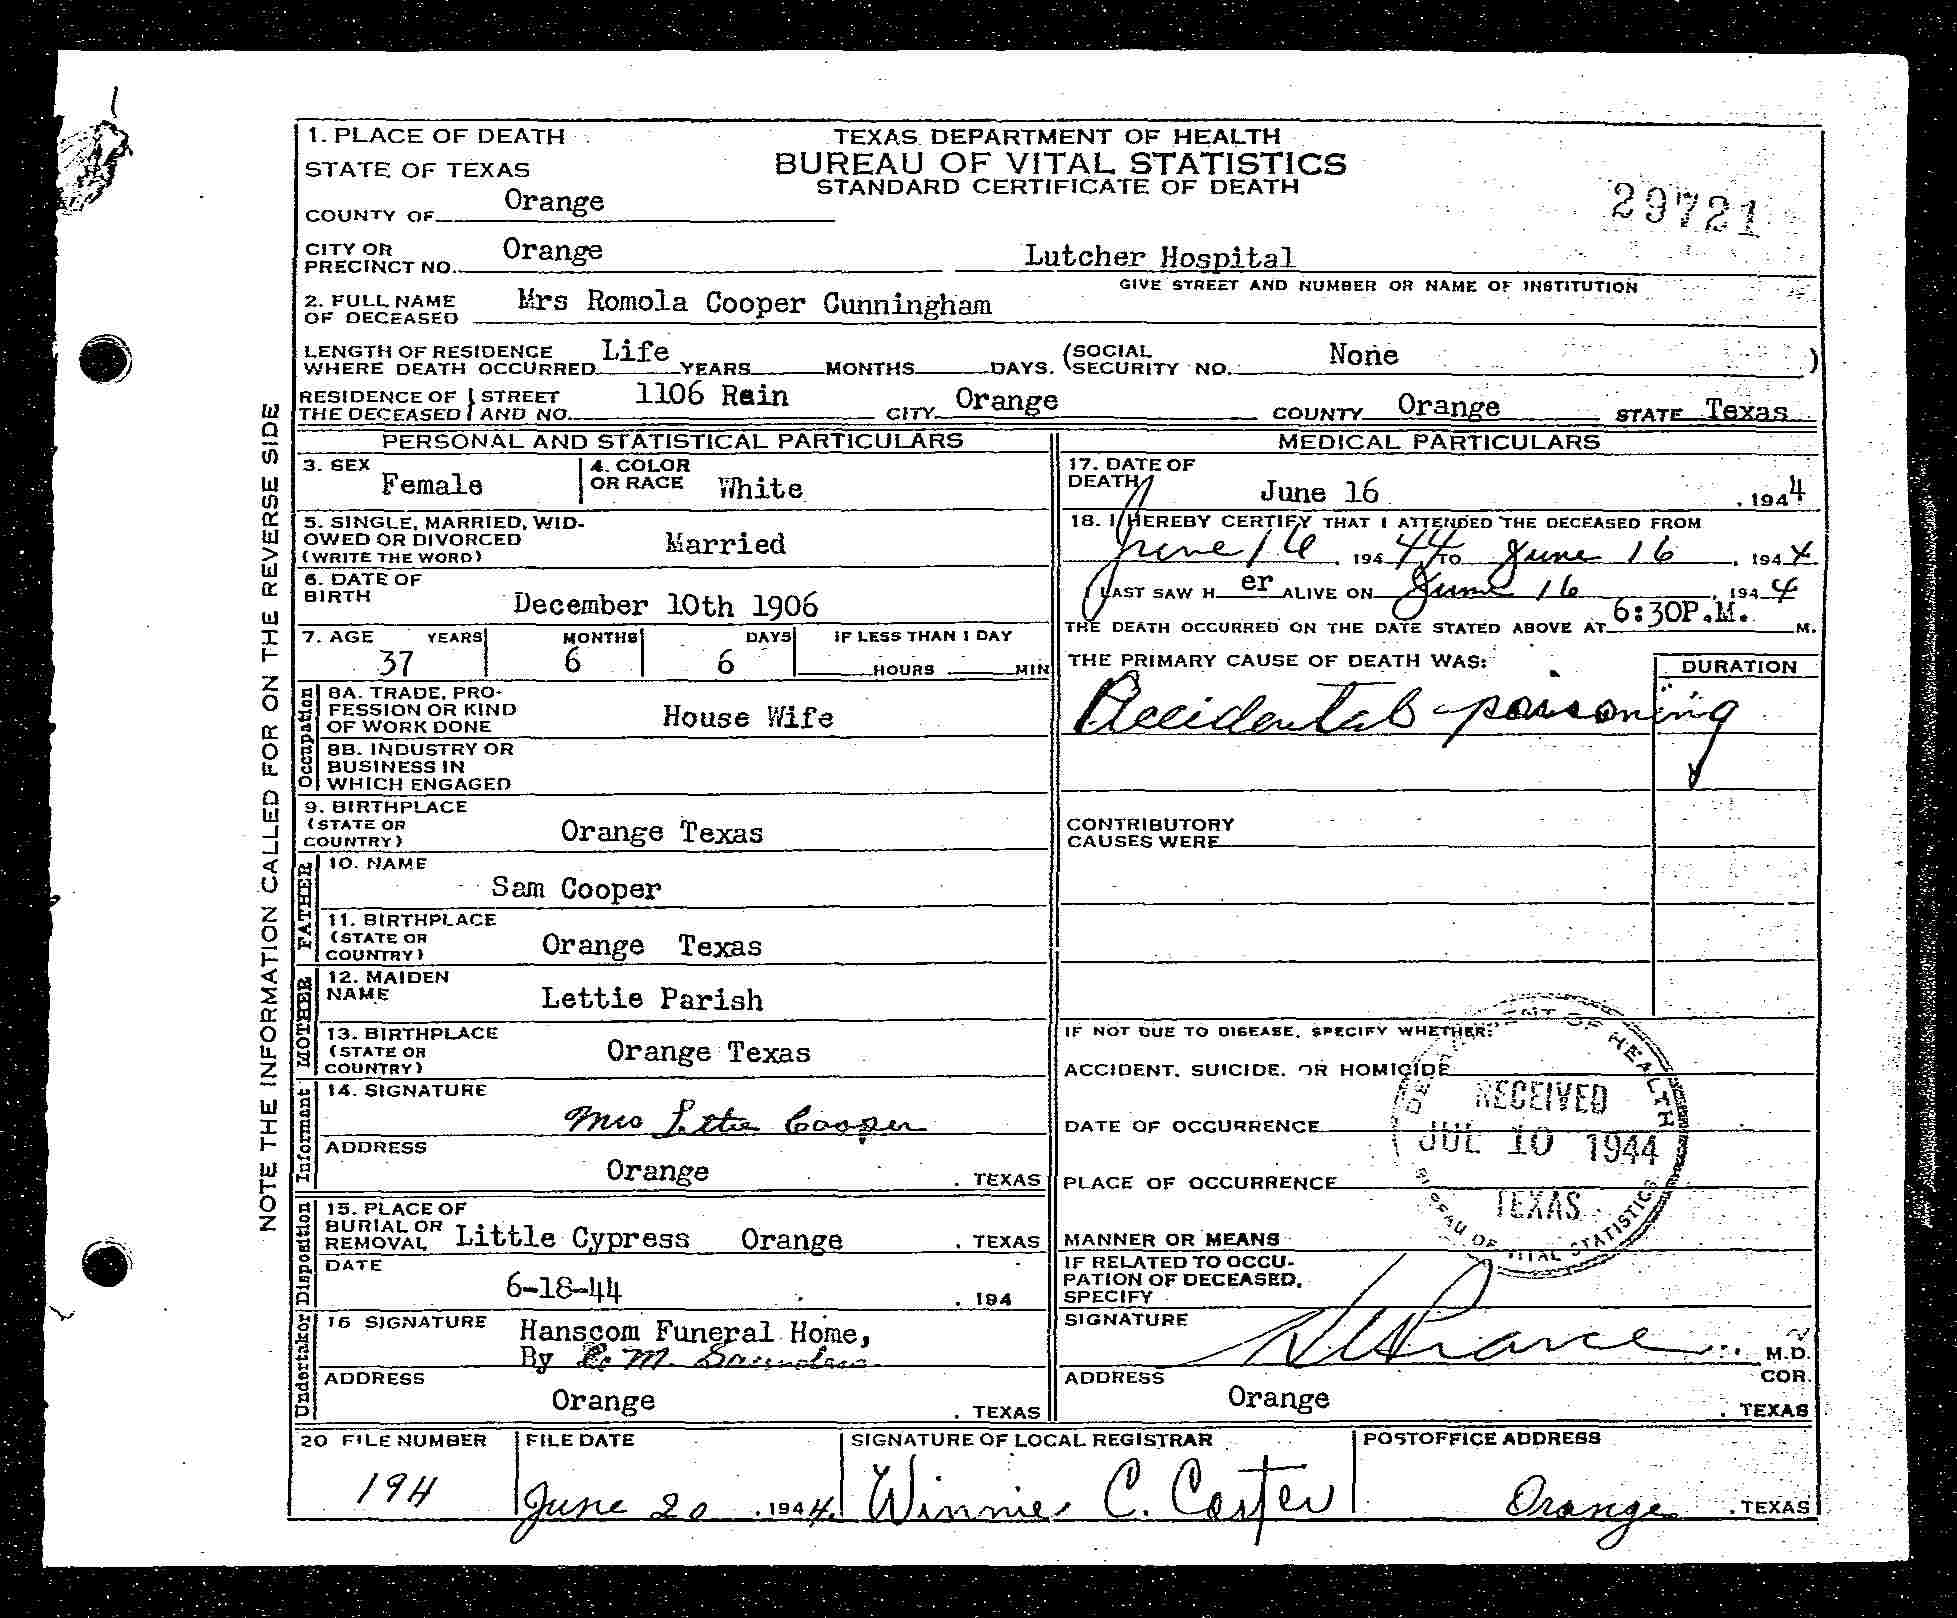 1. PLACE OF DEATH
TEXAS DEPARTMENT OF HEALTH
BUREAU OF VITAL STATISTICS
STANDARD CERTIFICATE OF DEATH
STATE OF TEXAS
COUNTY OF Orange
29721
CITY OR
PRECINCT NO. Orange Lutcher Hospital
GIVE STREET AND NUMBER OR NAME OF INSTITUTION
2. FULL NAME
OF DECEASED Mrs Romola Cooper Cunningham
LENGTH OF RESIDENCE
WHERE DEATH OCCURRED Life YEARS MONTHS DAYS. (SOCIAL
SECURITY NO. None )
RESIDENCE OF THE DECEASED STREET AND NO. 1106 Rein CITY Orange COUNTY Orange STATE Texas
NOTE THE INFORMATION CALLED FOR ON THE REVERSE SIDE
PERSONAL AND STATISTICAL PARTICULARS
3. SEX Female
4. COLOR
OR RACE White
5. SINGLE, MARRIED, WID-
OWED OR DIVORCED
(WRITE THE WORD) Married
6. DATE OF
BIRTH December 10th 1906
7. AGE YEARS MONTHS DAYS IF LESS THAN 1 DAY
37 6 6 HOURS MIN
Occupation
8A. TRADE, PRO-
FESSION OR KIND
OF WORK DONE House Wife
8B. INDUSTRY OR
BUSINESS IN
WHICH ENGAGED
9. BIRTHPLACE
(STATE OR
COUNTRY) Orange Texas
FATHER
10. NAME
Sam Cooper
11. BIRTHPLACE
(STATE OR
COUNTRY) Orange Texas
MOTHER
12. MAIDEN
NAME Lettie Parish
13. BIRTHPLACE
(STATE OR
COUNTRY) Orange Texas
Informant
14. SIGNATURE
Mrs Lettie Cooper
ADDRESS
Orange , TEXAS
Disposition
15. PLACE OF
BURIAL OR
REMOVAL Little Cypress Orange , TEXAS
DATE
6-18-44 , 194
Undertaker
16 SIGNATURE Hanscom Funeral Home,
By E. M. Saunders
ADDRESS
Orange , TEXAS
MEDICAL PARTICULARS
17. DATE OF
DEATH June 16 , 1944
18. I HEREBY CERTIFY THAT I ATTENDED THE DECEASED FROM
June 16 , 194 44 TO June 16 , 1944
LAST SAW H er ALIVE ON June 16 , 1944
THE DEATH OCCURRED ON THE DATE STATED ABOVE AT 6:30P.M. M.
THE PRIMARY CAUSE OF DEATH WAS: DURATION
Accidental poisoning
CONTRIBUTORY
CAUSES WERE
IF NOT DUE TO DISEASE, SPECIFY WHETHER:
ACCIDENT, SUICIDE, OR HOMICIDE
DATE OF OCCURRENCE
PLACE OF OCCURRENCE
MANNER OR MEANS
IF RELATED TO OCCU-
PATION OF DECEASED,
SPECIFY
DEPARTMENT OF HEALTH
RECEIVED
JUL 10 1944
TEXAS
BUREAU OF VITAL STATISTICS
SIGNATURE
M.D.
ADDRESS COR.
Orange , TEXAS
20 FILE NUMBER FILE DATE SIGNATURE OF LOCAL REGISTRAR POSTOFFICE ADDRESS
194 June 20 , 1944 Winnie C. Carter Orange , TEXAS